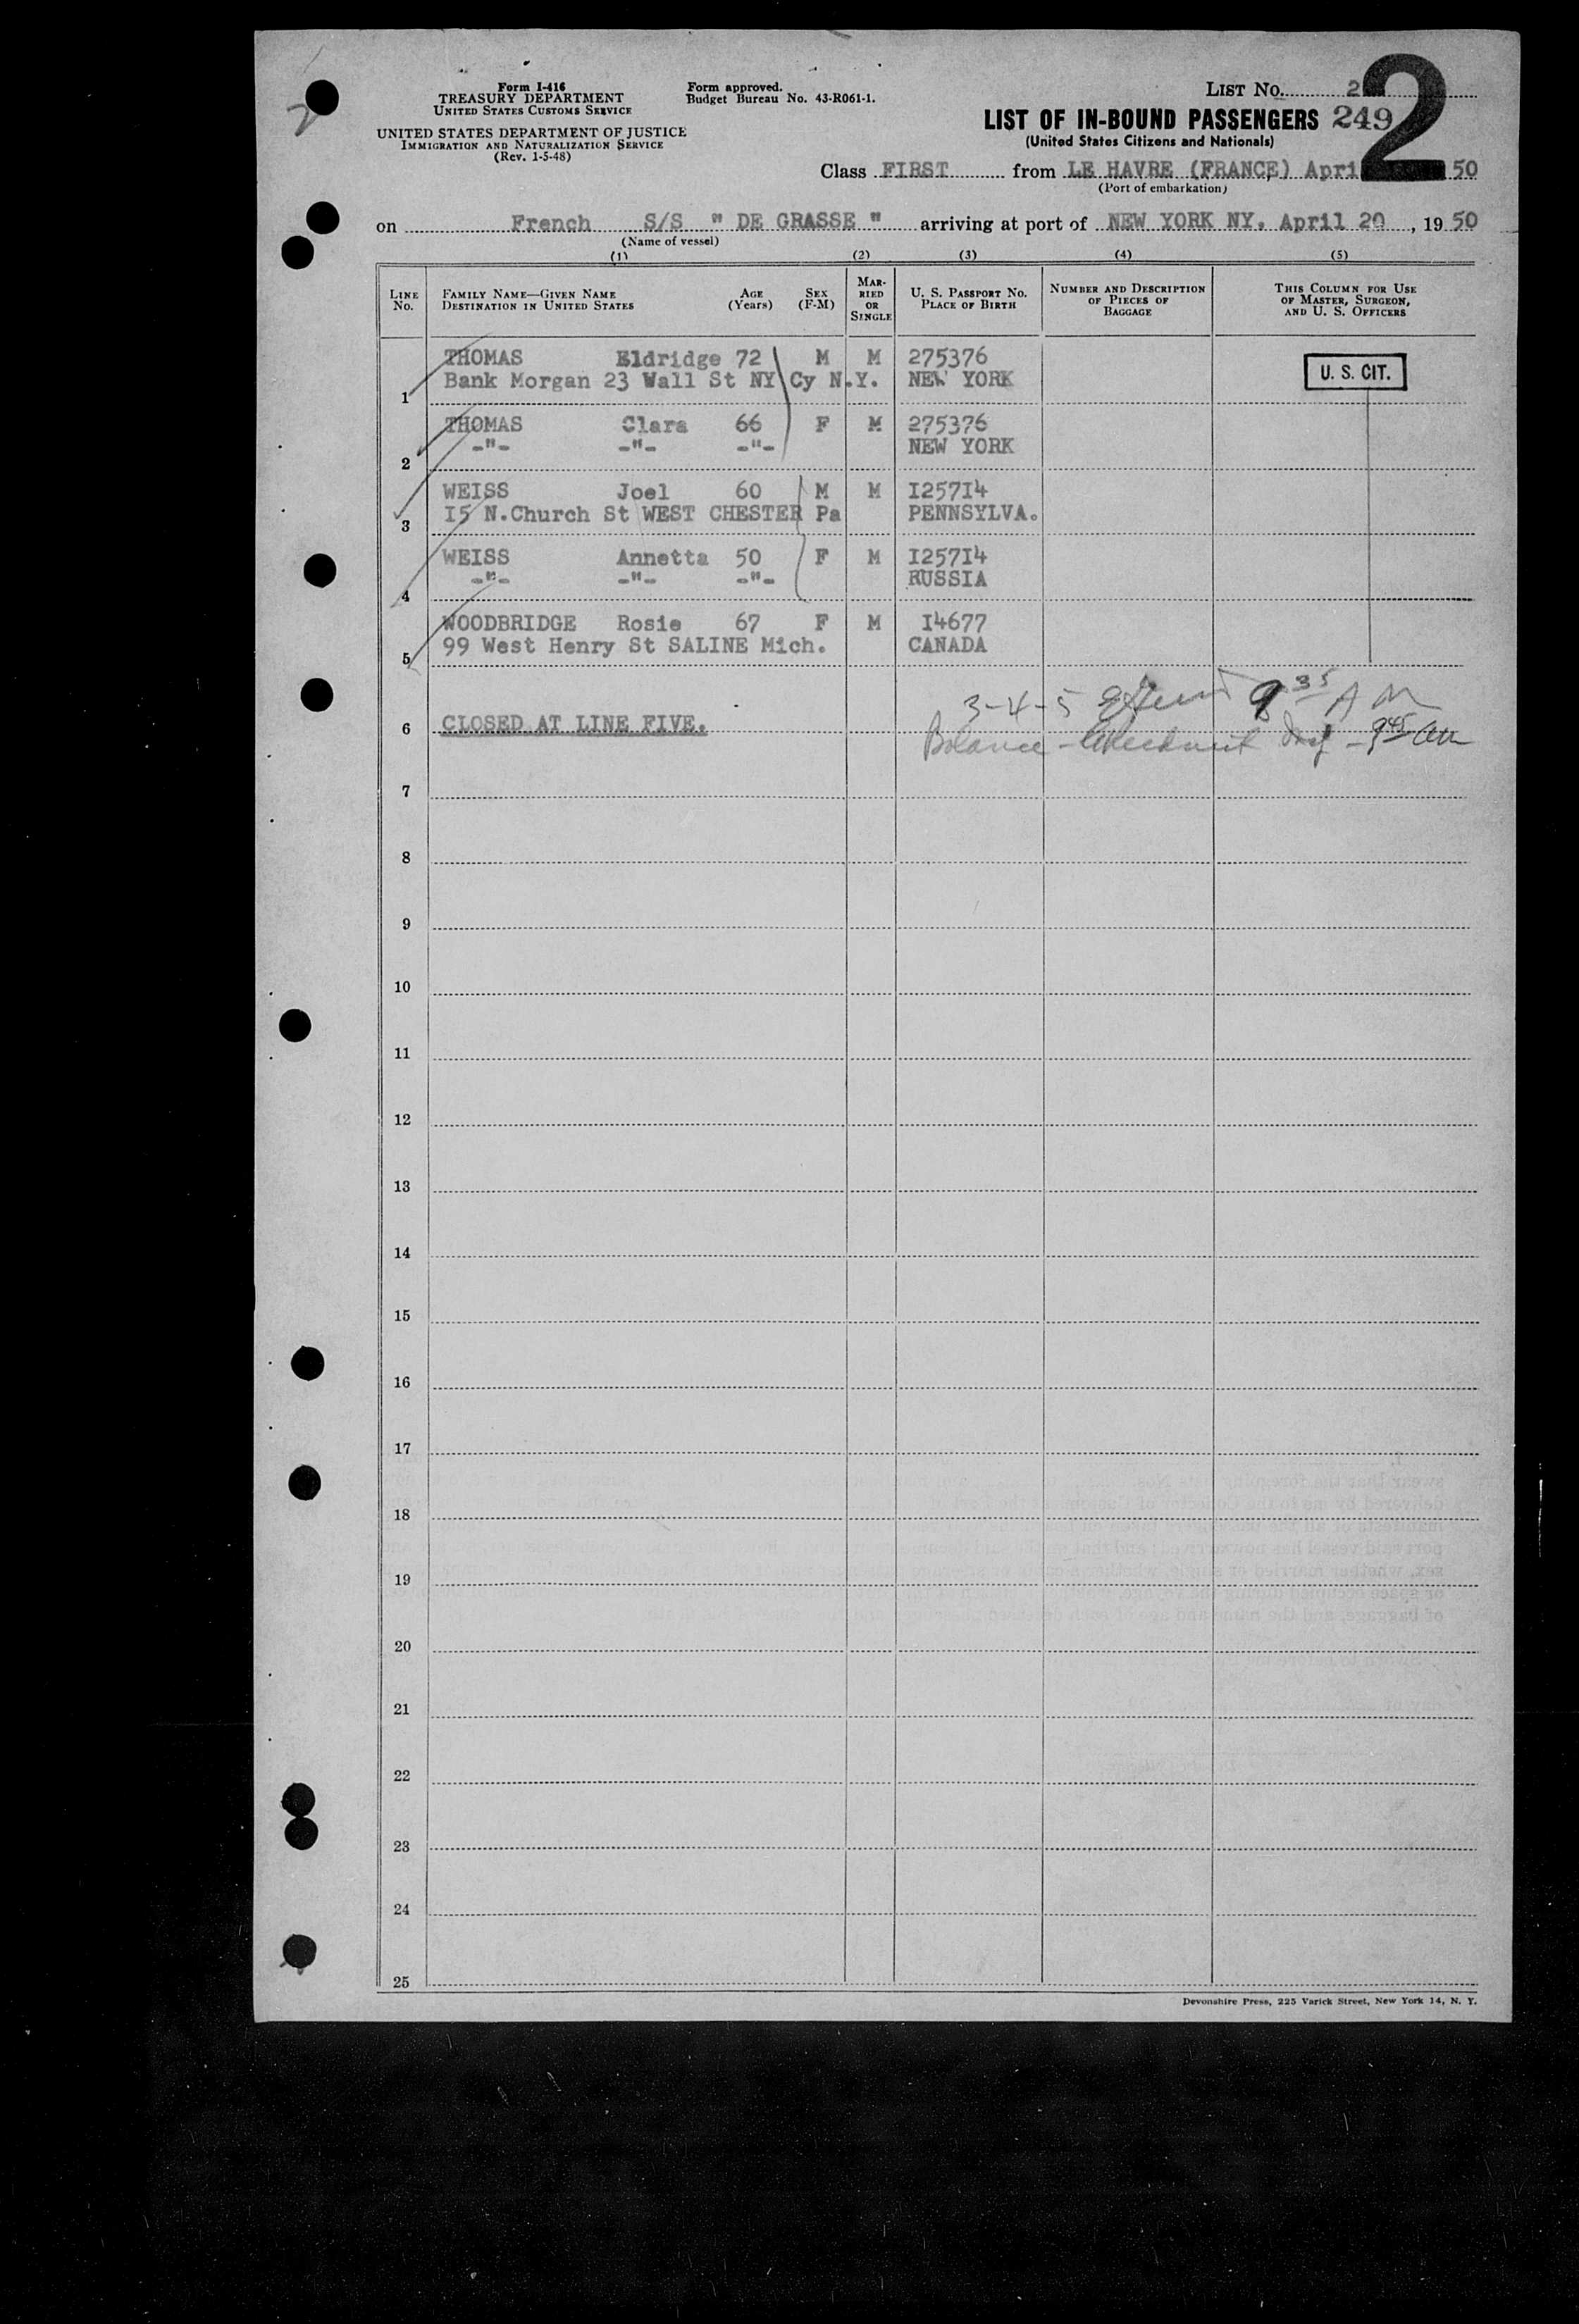 Form I-416
TREASURY DEPARTMENT
UNITED STATES CUSTOMS SERVICE
UNITED STATES DEPARTMENT OF JUSTICE
IMMIGRATION AND NATURALIZATION SERVICE
(Rev. 1-5-48)
Form approved.
Budget Bureau No. 43-R061-1.
LIST No. 2
2
LIST OF IN-BOUND PASSENGERS 249
(United States Citizens and Nationals)
Class FIRST from LE HAVRE (FRANCE) Apri 50
(Port of embarkation)
on French S/S " DE GRASSE " arriving at port of NEW YORK NY. April 20, 1950
(Name of vessel)
(1) (2) (3) (4) (5)
LINE No.
FAMILY NAME—GIVEN NAME
DESTINATION IN UNITED STATES
AGE (Years)
SEX (F-M)
MARRIED OR SINGLE
U. S. PASSPORT NO.
PLACE OF BIRTH
NUMBER AND DESCRIPTION OF PIECES OF BAGGAGE
THIS COLUMN FOR USE OF MASTER, SURGEON, AND U. S. OFFICERS
THOMAS Eldridge 72 M M 275376
1 Bank Morgan 23 Wall St NY Cy N.Y. NEW YORK
U. S. CIT.
THOMAS Clara 66 F M 275376
2 -"- -"- -"- NEW YORK
WEISS Joel 60 M M I257I4
3 I5 N.Church St WEST CHESTER Pa PENNSYLVA.
WEISS Annetta 50 F M I257I4
4 -"- -"- -"- RUSSIA
WOODBRIDGE Rosie 67 F M I4677
5 99 West Henry St SALINE Mich. CANADA
3-4-5 9 35 A M
6 CLOSED AT LINE FIVE.
Balance - 9 45 am
7
8
9
10
11
12
13
14
15
16
17
18
19
20
21
22
23
24
25
Devonshire Press, 225 Varick Street, New York 14, N. Y.